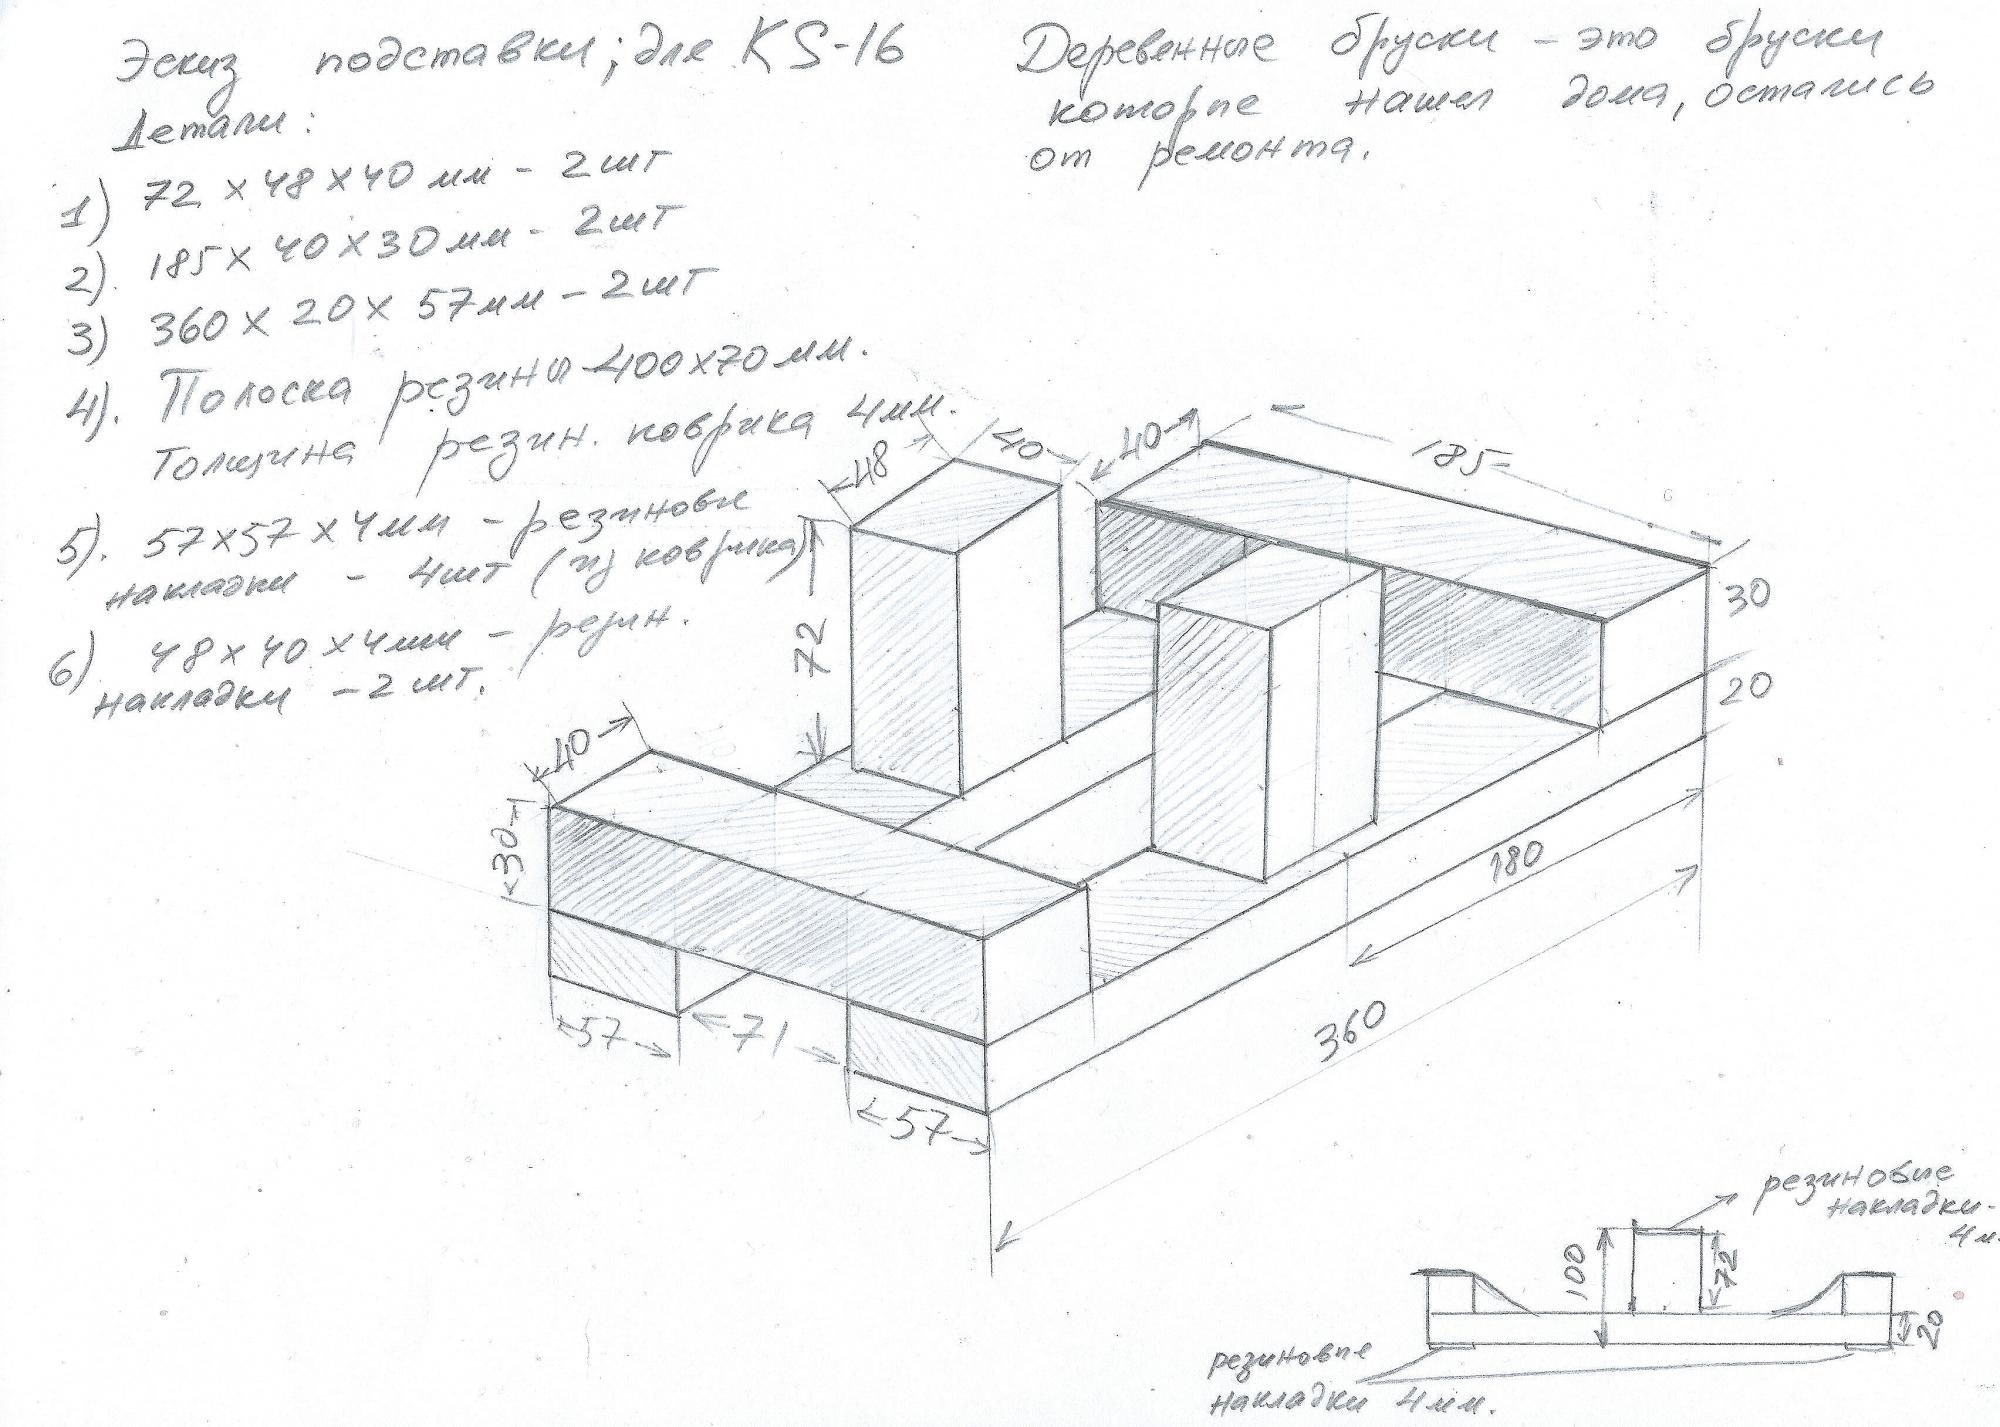 Эскиз подставки; для KS-16
Детали:
1) 72 x 48 x 40 мм - 2 шт
2). 185 x 40 x 30 мм - 2 шт
3) 360 x 20 x 57 мм - 2 шт
4). Полоска резины 400x70 мм.
Толщина резин. коврика 4 мм.
5). 57x57 x 4 мм - резиновые
накладки - 4шт (из коврика)
6) 48 x 40 x 4мм - резин.
накладки - 2 шт.
Деревенные бруски - это бруски
которые нашел дома, остались
от ремонта.
48
40
40
185
72
30
20
40
30
57
71
57
180
360
резиновые
накладки -
4 м.
100
72
20
резиновые
накладки 4 мм.